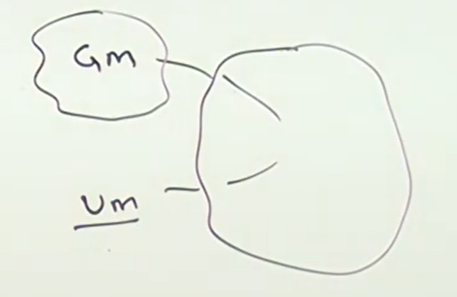 Gm
Um